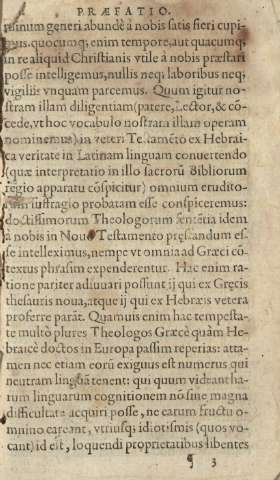 PRÆFATIO.
generi abundè à nobis satis fieri cupi-
mus. quocumq; enim tempore, aut quacumq;
in re aliquid Christianis vtile à nobis præstari
posse intelligemus, nullis neq; laboribus neq;
vigiliis vnquam parcemus. Quum igitur no-
stram illam diligentiam (patere, Lector, & cō-
cede, vt hoc vocabulo nostram illam operam
nominemus) in veteri Testamēto ex Hebrai-
ca veritate in Latinam linguam conuertendo
(quæ interpretatio in illo sacrorū Bibliorum
regio apparatu cōspicitur) omnium erudito-
rum suffragio probatam esse conspiceremus:
doctissimorum Theologorum sentētia idem
à nobis in Nouo Testamento præstandum es-
se intelleximus, nempe vt omnia ad Græci cō-
textus phrasim expenderentur. Hac enim ra-
tione pariter adiuuari possunt ij qui ex Gręcis
thesauris noua, atque ij qui ex Hebræis vetera
proferre parāt. Quamuis enim hac tempesta-
te multò plures Theologos Græcè quàm He-
braicè doctos in Europa passim reperias: atta-
men nec etiam eorū exiguus est numerus qui
neutram linguā tenent: qui quum videant ha-
rum linguarum cognitionem nō sine magna
difficultate acquiri posse, ne earum fructu o-
mnino careant, vtriusq; idiotismis (quos vo-
cant) id est, loquendi proprietatibus libentes
¶ 3